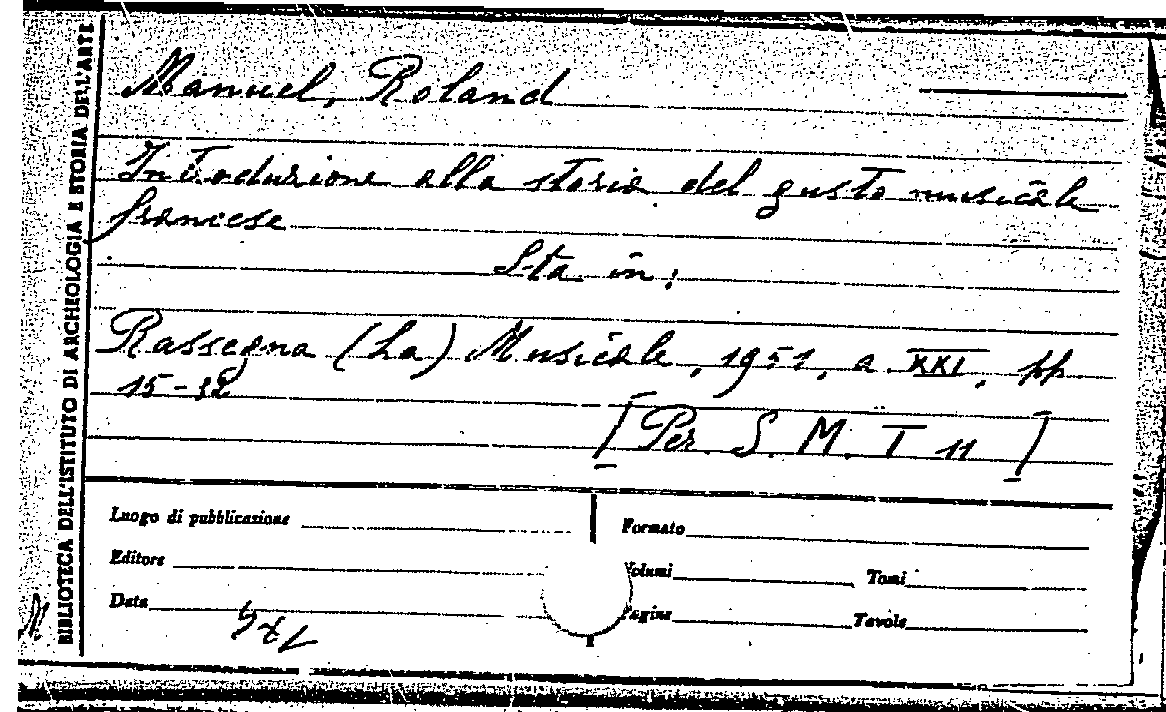 BIBLIOTECA DELL'ISTITUTO DI ARCHEOLOGIA E STORIA DELL'ARTE
Manuel, Roland
Introduzione alla storia del gusto musicale
francese
Sta in:
Rassegna (La) Musicale, 1951, a. XXI, pp
15-32
[Per. S. M. I 11]
Luogo di pubblicazione
Formato
Editore
Volumi
Tomi
Data
Pagine
Tavole